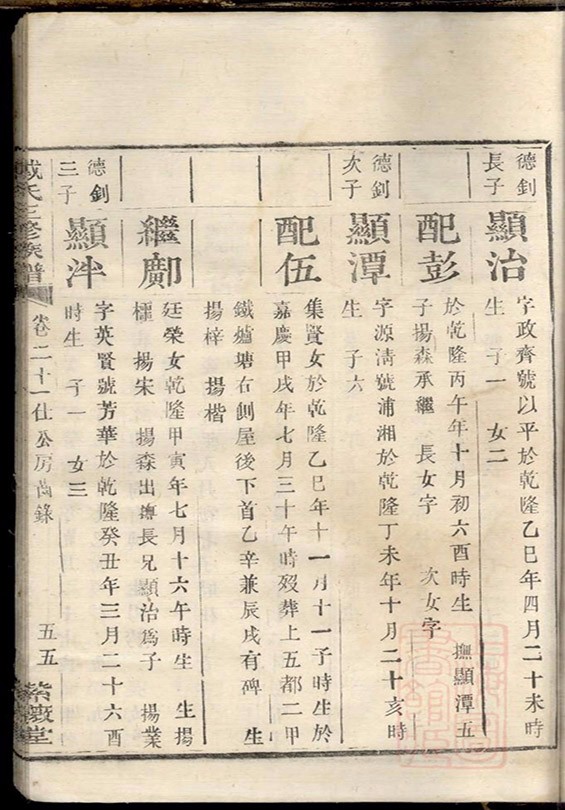 德釗
長子
顯治
字政齊號以平於乾隆乙巳年四月二十未時
生 子一 女二
配彭
於乾隆丙午年十月初六酉時生 撫顯潭五
子揚森承繼 長女字 次女字
德釗
次子
顯潭
字源清號浦湘於乾隆丁未年十月二十亥時
生 子六
配伍
集賢女於乾隆乙巳年十一月十一子時生於
嘉慶甲戌年七月三十午時歿葬上五都二甲
鐵爐塘右側屋後下首乙辛兼辰戌有碑 生
揚梓 揚楷
繼鄺
廷榮女乾隆甲寅年七月十六午時生 生揚
揚宋 揚森出摶長兄顯治爲子 揚業
德釗
三子
顯泮
字英賢號芳華於乾隆癸丑年三月二十六酉
時生 子一 女三
氏三修族譜
卷二十一仕公房齒錄
五五
紫薇堂